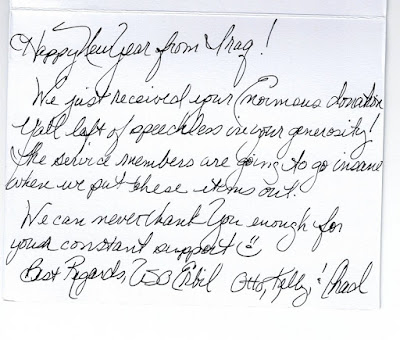 Happy New Year from Iraq!
We just received your Enormous donation
Y'all left of speechless in your generosity!
The service members are going to go insane
when we put these items out.
We can never thank you enough for
your constant support ☺
Best Regards, USO Erbil Otto, Kelly, & Chad